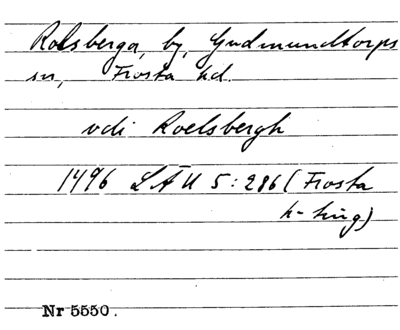 Rolsberga, by, Gudmundtorps
sn, Frosta hd.
vdi Roelsbergh
1496 LÄU 5:286 (Frosta
h-ting)
Nr 5550.